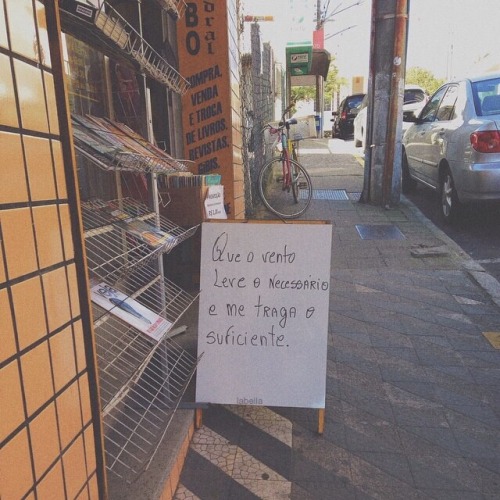 dral
BO
COMPRA,
VENDA
E TROCA
DE LIVROS,
REVISTAS,
Que o vento
Leve o necessário
e me traga o
suficiente.
labella